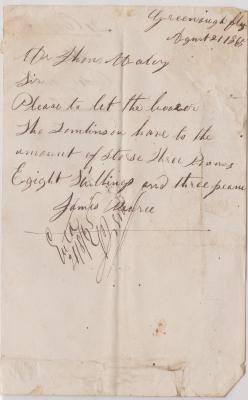 Greenough
August 21 1865
Mr Thons
Sir
Please to let the bearer
Tho Tomlinson have to the
amount of Storse three Pounds
Egight Shillings and three peance
James